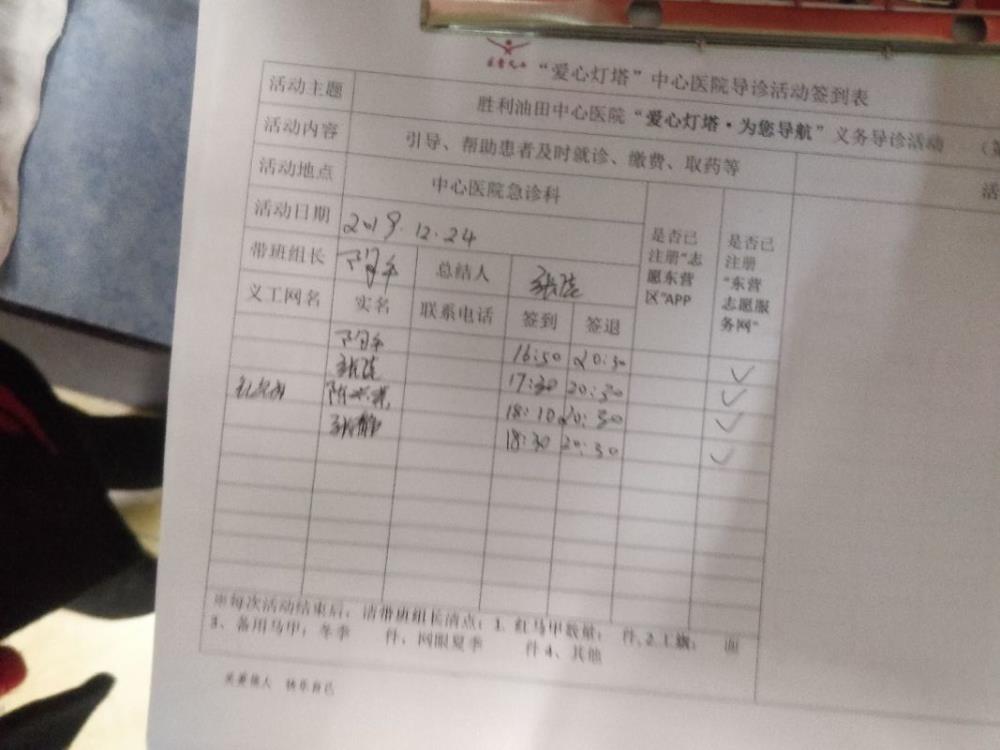 “爱心灯塔”中心医院导诊活动签到表
活动主题 胜利油田中心医院“爱心灯塔·为您导航”义务导诊活动
活动内容 引导、帮助患者及时就诊、缴费、取药等
活动地点 中心医院急诊科
活动日期 2019.12.24
带班组长 总结人
义工网名 实名 联系电话 签到 签退 是否已注册“志愿东营区”APP 是否已注册“东营志愿服务网”
16:50 20:30 ✓
17:30 20:30 ✓
18:10 20:30 ✓
张静 18:30 20:30 ✓
※每次活动结束后，请带班组长清点：1、红马甲数量： 件、2、 面
3、备用马甲：冬季 件，网眼夏季 件 4、其他
关爱他人 快乐自己